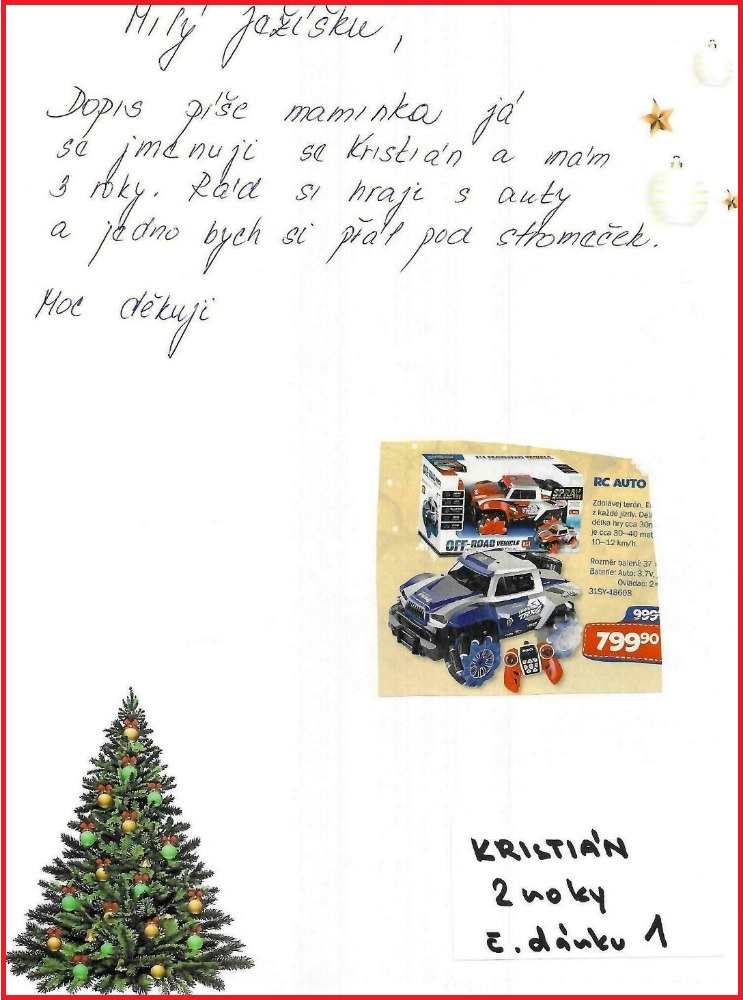 Milý Ježíšku,
Dopis píše maminka já
se jmenuji se Kristián a mám
3 roky. Rád si hraji s auty
a jedno bych si přál pod stromeček.
Moc děkuji
OFF-ROAD VEHICLE
RC AUTO
Zdolávej terén.
z každé jízdy.
délka hry cca 30
je cca 30–40
10–12 km/h.
Rozměr balení: 37
Baterie: Auto: 3.7V,
Ovladač: 2
31SY-48608
999
799⁹⁰
KRISTIÁN
2 roky
č. dárku 1